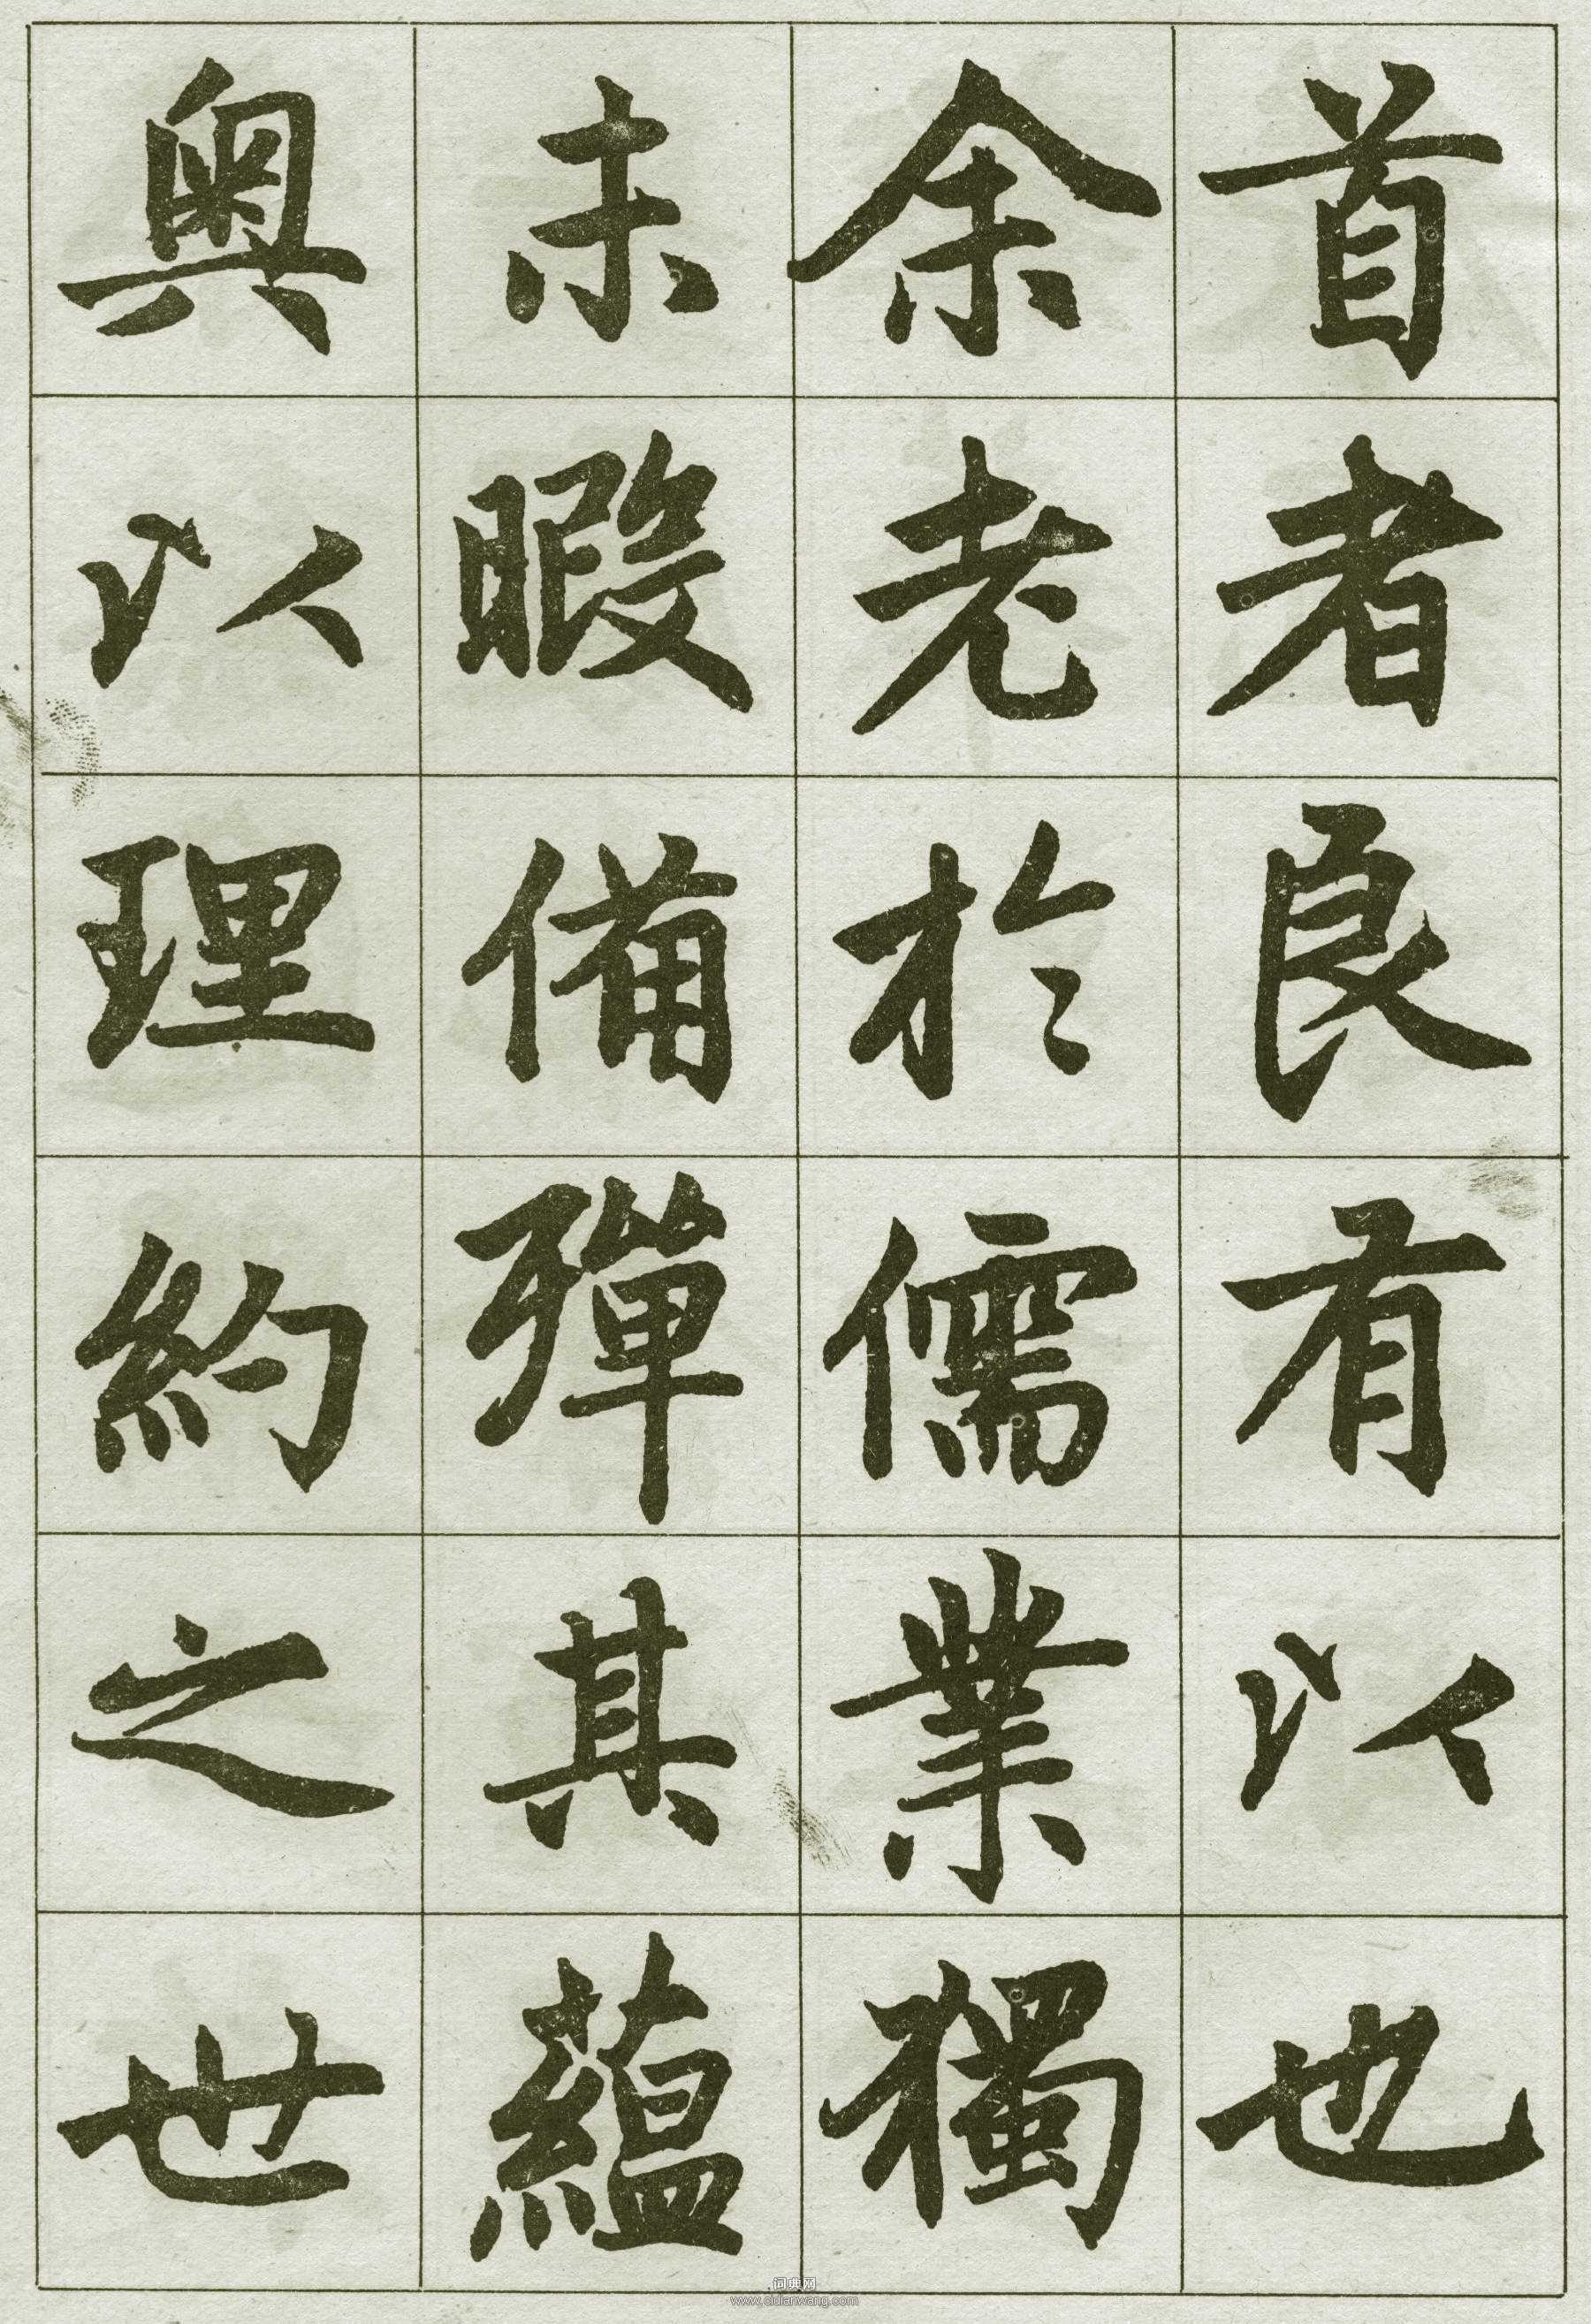 首者良有以也
余老於儒業獨
未暇備殫其蘊
奧以理約之世
词典网
www.cidianwang.com